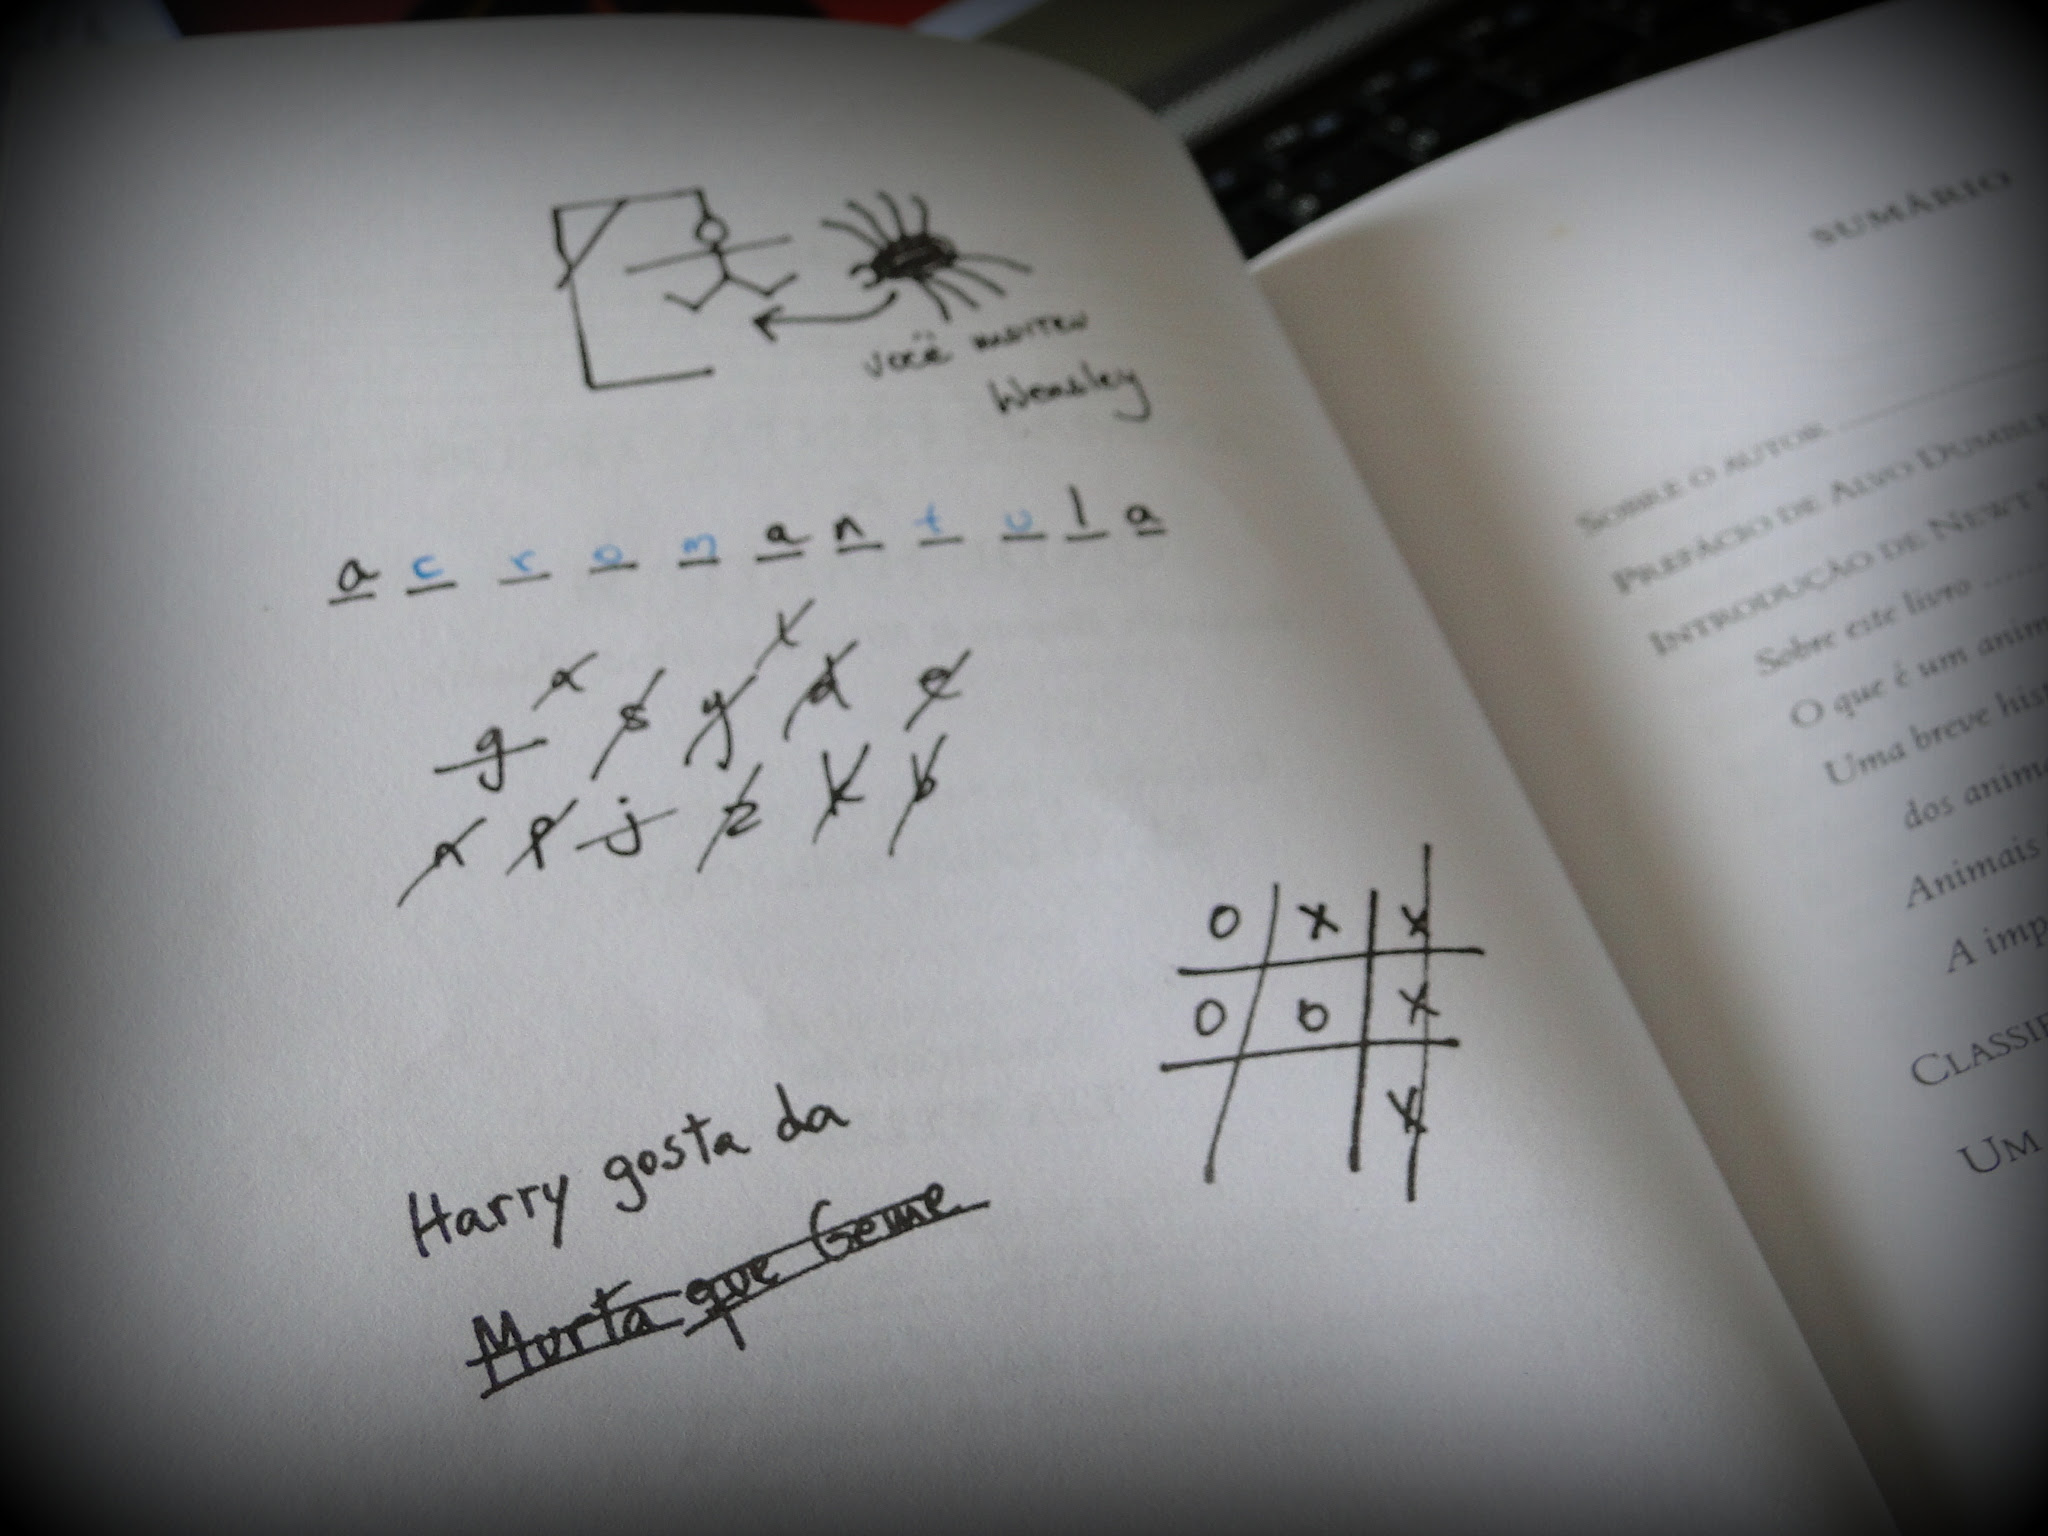 você morreu
Weasley
a c r o m a n t u l a
a l
g s y d e
n p j z k b
O X X
O O X
X
Harry gosta da
Murta que Geme
SUMÁRIO
SOBRE O AUTOR
PREFÁCIO DE ALVO
INTRODUÇÃO DE NEWT
Sobre este livro ........
O que é um
Uma breve
dos
Animais
A
UM